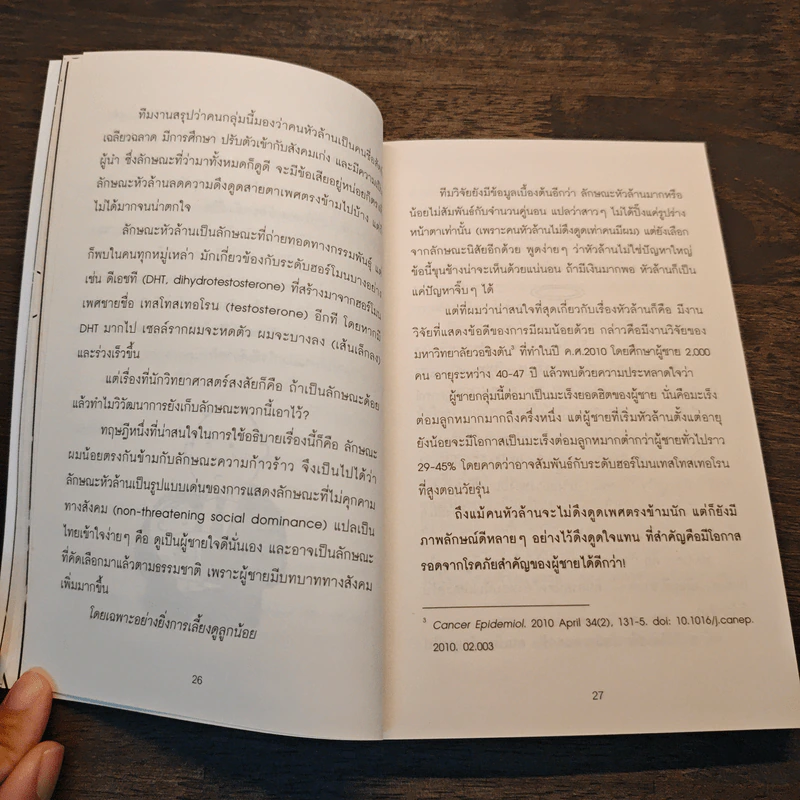 ทีมงานสรุปว่าคนกลุ่มนี้มองว่าคนหัวล้านเป็นคน
เฉลียวฉลาด มีการศึกษา ปรับตัวเข้ากับสังคมเก่ง และมีความ
ผู้นำ ซึ่งลักษณะที่ว่ามาทั้งหมดก็ดูดี จะมีข้อเสียอยู่หน่อยก็ตรง
ลักษณะหัวล้านลดความดึงดูดสายตาเพศตรงข้ามไปบ้าง แต่
ไม่ได้มากจนน่าตกใจ
ลักษณะหัวล้านเป็นลักษณะที่ถ่ายทอดทางกรรมพันธุ์ และ
ก็พบในคนทุกหมู่เหล่า มักเกี่ยวข้องกับระดับฮอร์โมนบางอย่าง
เช่น ดีเอชที (DHT, dihydrotestosterone) ที่สร้างมาจากฮอร์โมน
เพศชายชื่อ เทสโทสเทอโรน (testosterone) อีกที โดยหากมี
DHT มากไป เซลล์รากผมจะหดตัว ผมจะบางลง (เส้นเล็กลง)
และร่วงเร็วขึ้น
แต่เรื่องที่นักวิทยาศาสตร์สงสัยก็คือ ถ้าเป็นลักษณะด้อย
แล้วทำไมวิวัฒนาการยังเก็บลักษณะพวกนี้เอาไว้?
ทฤษฎีหนึ่งที่น่าสนใจในการใช้อธิบายเรื่องนี้ก็คือ ลักษณะ
ผมน้อยตรงกันข้ามกับลักษณะความก้าวร้าว จึงเป็นไปได้ว่า
ลักษณะหัวล้านเป็นรูปแบบเด่นของการแสดงลักษณะที่ไม่คุกคาม
ทางสังคม (non-threatening social dominance) แปลเป็น
ไทยเข้าใจง่ายๆ คือ ดูเป็นผู้ชายใจดีนั่นเอง และอาจเป็นลักษณะ
ที่คัดเลือกมาแล้วตามธรรมชาติ เพราะผู้ชายมีบทบาททางสังคม
เพิ่มมากขึ้น
โดยเฉพาะอย่างยิ่งการเลี้ยงดูลูกน้อย
26
ทีมวิจัยยังมีข้อมูลเบื้องต้นอีกว่า ลักษณะหัวล้านมากหรือ
น้อยไม่สัมพันธ์กับจำนวนคู่นอน แปลว่าสาวๆ ไม่ได้ปิ๊งแค่รูปร่าง
หน้าตาเท่านั้น (เพราะคนหัวล้านไม่ดึงดูดเท่าคนมีผม) แต่ยังเลือก
จากลักษณะนิสัยอีกด้วย พูดง่ายๆ ว่าหัวล้านไม่ใช่ปัญหาใหญ่
ข้อนี้ขุนช้างน่าจะเห็นด้วยแน่นอน ถ้ามีเงินมากพอ หัวล้านก็เป็น
แค่ปัญหาจิ๊บๆ ได้
แต่ที่ผมว่าน่าสนใจที่สุดเกี่ยวกับเรื่องหัวล้านก็คือ มีงาน
วิจัยที่แสดงข้อดีของการมีผมน้อยด้วย กล่าวคือมีงานวิจัยของ
มหาวิทยาลัยวอชิงตัน³ ที่ทำในปี ค.ศ.2010 โดยศึกษาผู้ชาย 2,000
คน อายุระหว่าง 40-47 ปี แล้วพบด้วยความประหลาดใจว่า
ผู้ชายกลุ่มนี้ต่อมาเป็นมะเร็งยอดฮิตของผู้ชาย นั่นคือมะเร็ง
ต่อมลูกหมากมากถึงครึ่งหนึ่ง แต่ผู้ชายที่เริ่มหัวล้านตั้งแต่อายุ
ยังน้อยจะมีโอกาสเป็นมะเร็งต่อมลูกหมากต่ำกว่าผู้ชายทั่วไปราว
29-45% โดยคาดว่าอาจสัมพันธ์กับระดับฮอร์โมนเทสโทสเทอโรน
ที่สูงตอนวัยรุ่น
ถึงแม้คนหัวล้านจะไม่ดึงดูดเพศตรงข้ามนัก แต่ก็ยังมี
ภาพลักษณ์ดีหลายๆ อย่างไว้ดึงดูดใจแทน ที่สำคัญคือมีโอกาส
รอดจากโรคภัยสำคัญของผู้ชายได้ดีกว่า!
³ Cancer Epidemiol. 2010 April 34(2), 131-5. doi: 10.1016/j.canep.
2010. 02.003
27